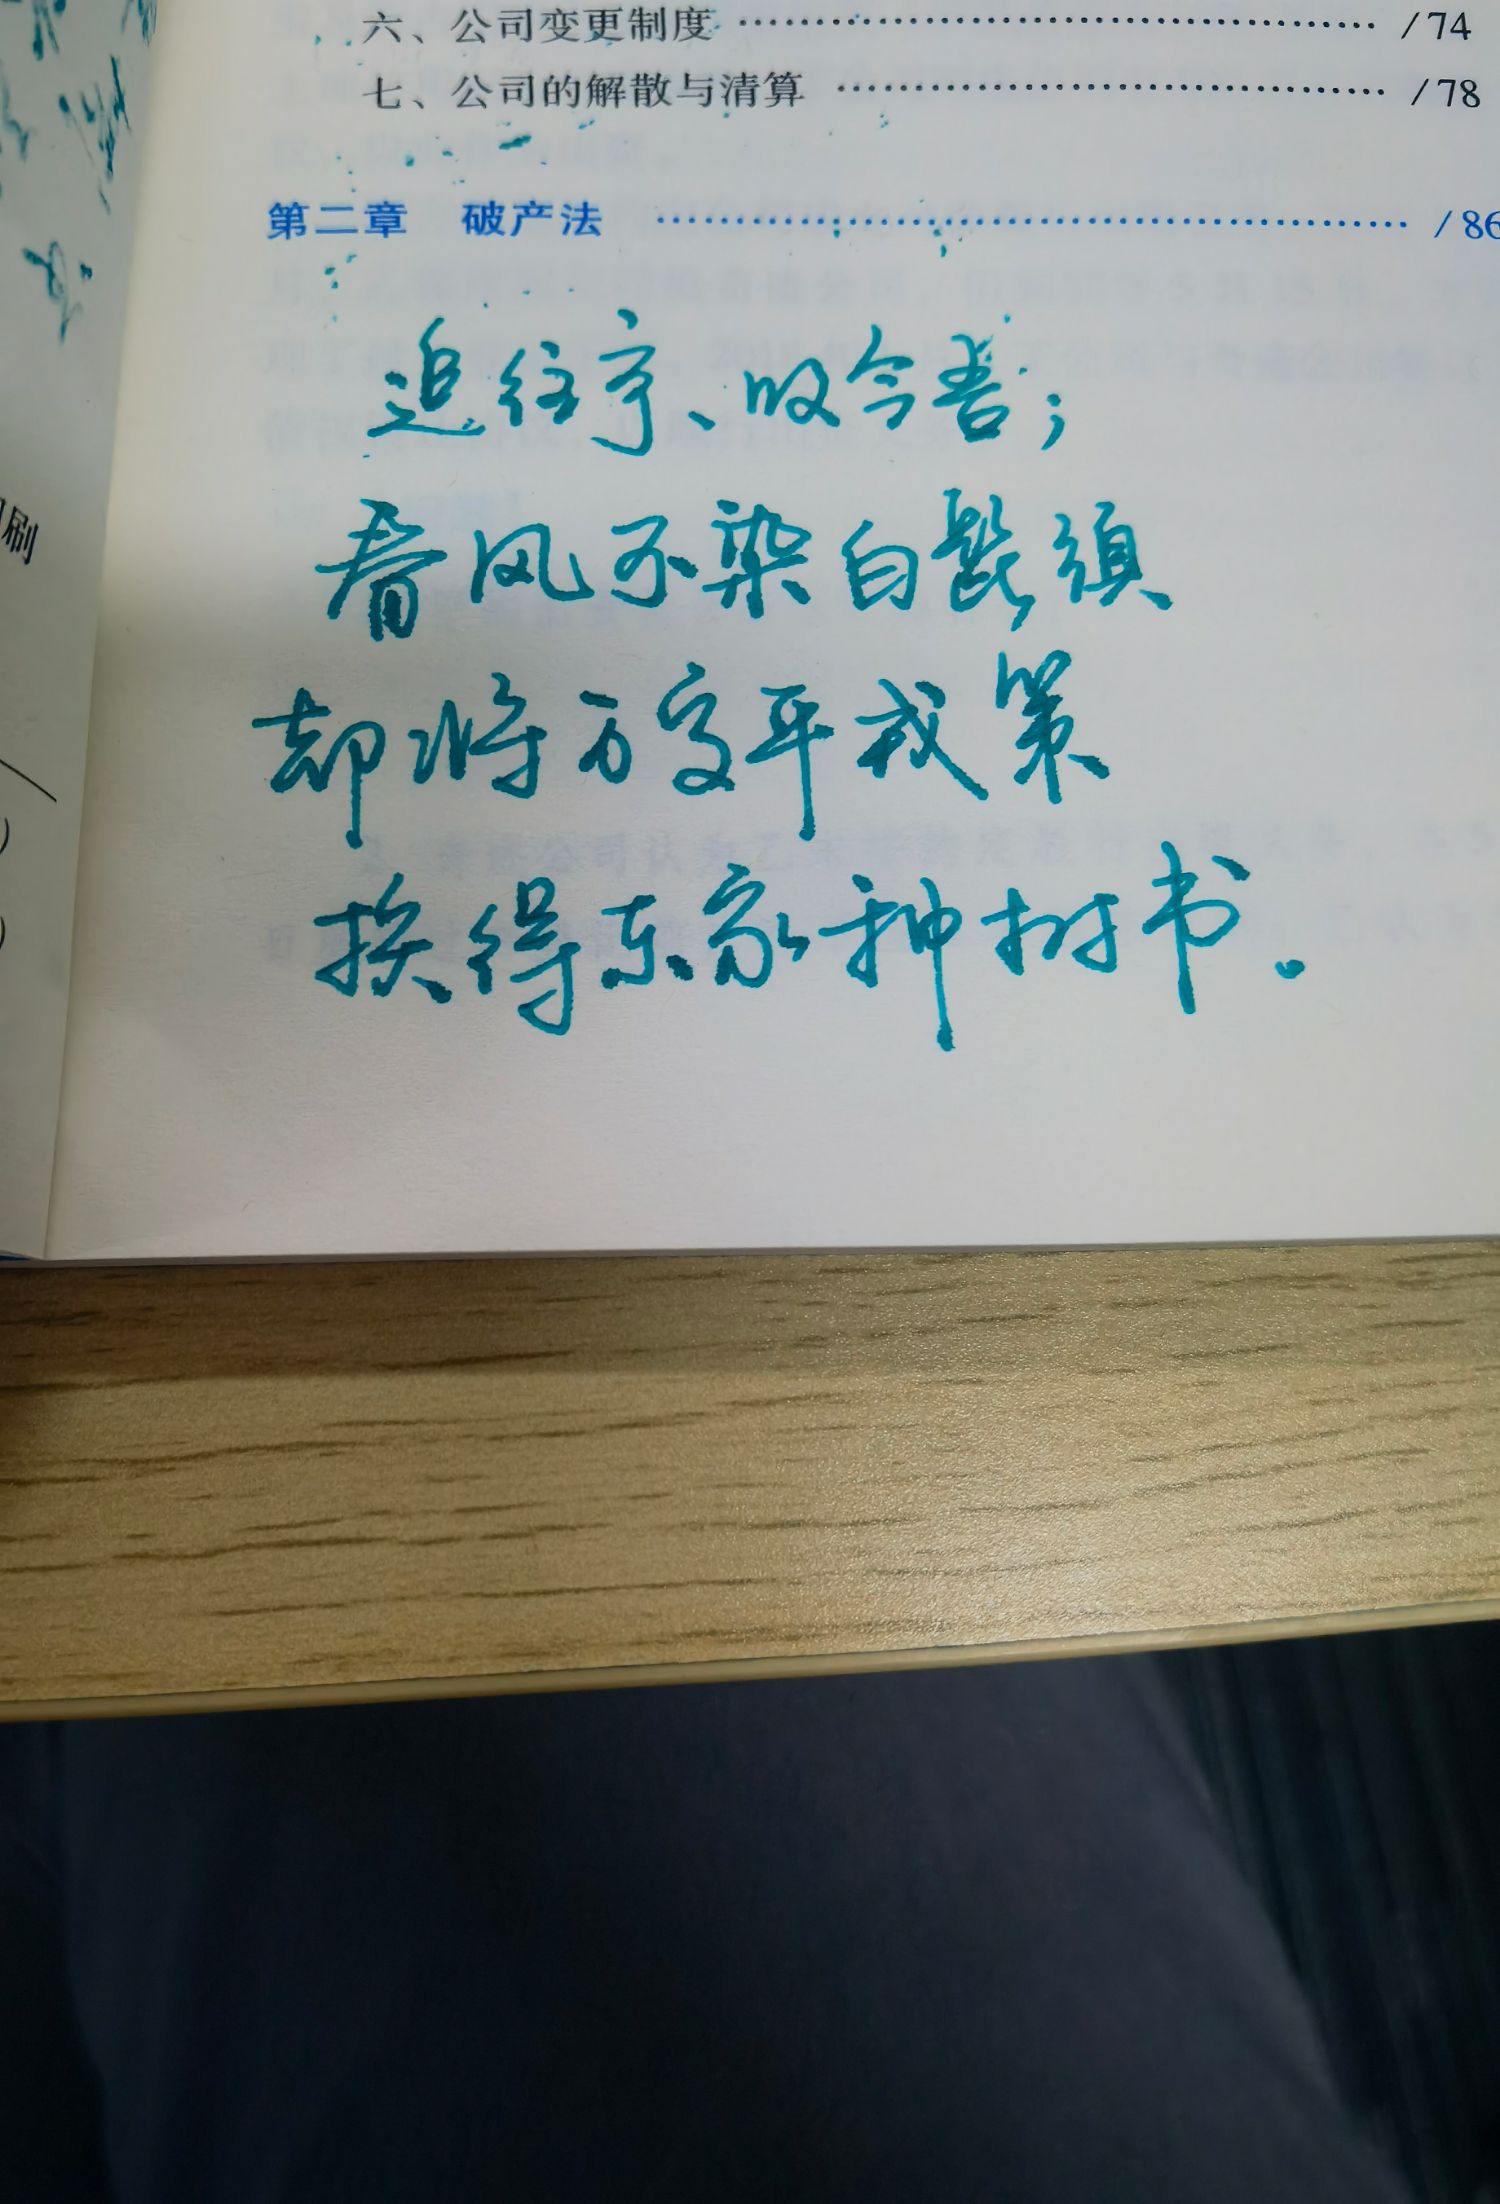 六、公司变更制度 ⋯⋯⋯⋯⋯⋯⋯⋯⋯⋯⋯⋯ / 74
七、公司的解散与清算 ⋯⋯⋯⋯⋯⋯⋯⋯⋯⋯⋯⋯ / 78
第二章 破产法 ⋯⋯⋯⋯⋯⋯⋯⋯⋯⋯⋯⋯ / 86
追往事、叹今吾；
春风不染白髭须
却将万字平戎策
换得东家种树书。
刷